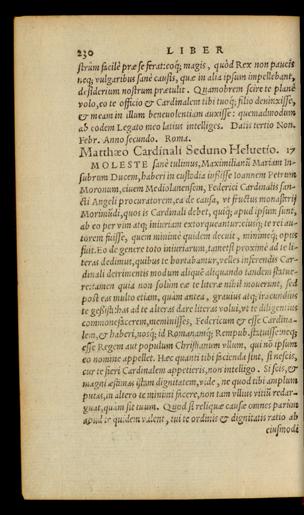 230 LIBER
strum facilè præ se ferat: eoq; magis, quòd Rex non paucis
neq; vulgaribus sanè causis, quæ in alia ipsum impellebant,
desiderium nostrum prætulit. Quamobrem scire te planè
volo, eo te officio & Cardinalem tibi tuoq; filio deuinxisse,
& meam in illum beneuolentiam auxisse: quemadmodum
ab eodem Legato meo latius intelliges. Datis tertio Non.
Febr. Anno secundo. Roma.
Matthæo Cardinali Seduno Heluetio. 17
MOLESTE sanè tulimus, Maximilianū Mariam In-
subrum Ducem, haberi in custodia iussisse Ioannem Petrum
Moronum, ciuem Mediolanensem, Federici Cardinalis san-
cti Angeli procuratorem, ea de causa, vt fructus monasterij
Morimūdi, quos is Cardinali debet, quiq; apud ipsum sunt,
ab eo per vim atq; iniuriam extorqueantur: eiusq; te rei au-
torem fuisse, quem minimè quidem decuit, minimeq; opus
fuit. Eo de genere toto iniuriarum, tametsi proximè ad te li-
teras dedimus, quibus te hortabamur, velles inferendis Car-
dinali detrimentis modum aliquē aliquando tandem statue-
re: tamen quia non solùm eæ te literæ nihil mouerunt, sed
post eas multo etiam, quàm antea, grauius atq; iracundius
te gessisti: has ad te alteras dare literas volui, vt te diligentius
commonefacerem, meminisses, Federicum & esse Cardina-
lem, & haberi, nosq; id Romanamq; Rempub. statuisse: neq;
esse Regem aut populum Christianum vllum, qui nō ipsum
eo nomine appellet. Hæc quanti tibi facienda sint, si nescis,
cur te fieri Cardinalem appetieris, non intelligo. Si scis, &
magni æstimas istam dignitatem, vide, ne quod tibi amplum
putas, in altero te minimi facere, non tam vllius vitiū redar-
guat, quàm sit tuum. Quod si reliquæ causæ omnes parùm
apud te quidem valent, tui te ordinis & dignitatis ratio ab
eiusmodi